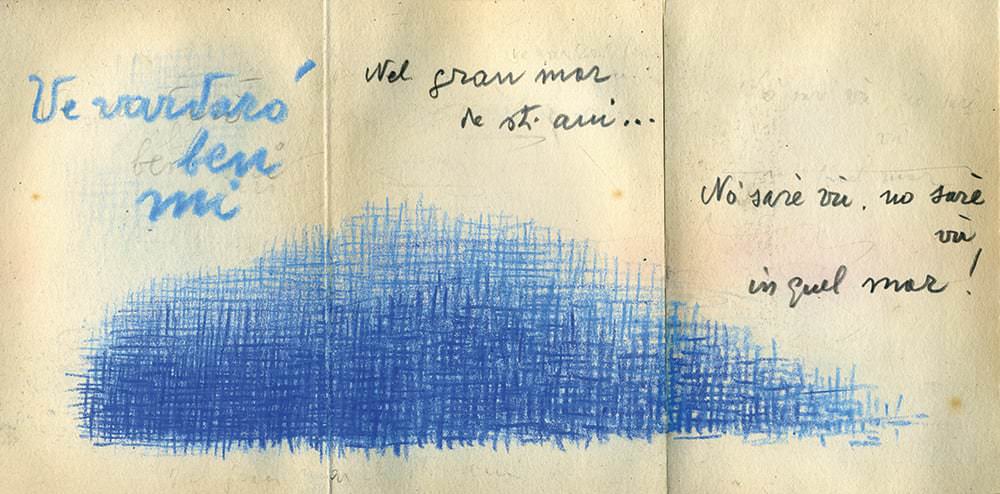 Ve vardarò
ben
mi
Nel gran mar
de sti ani...
No sarè vù, no sarè
vù
in quel mar!